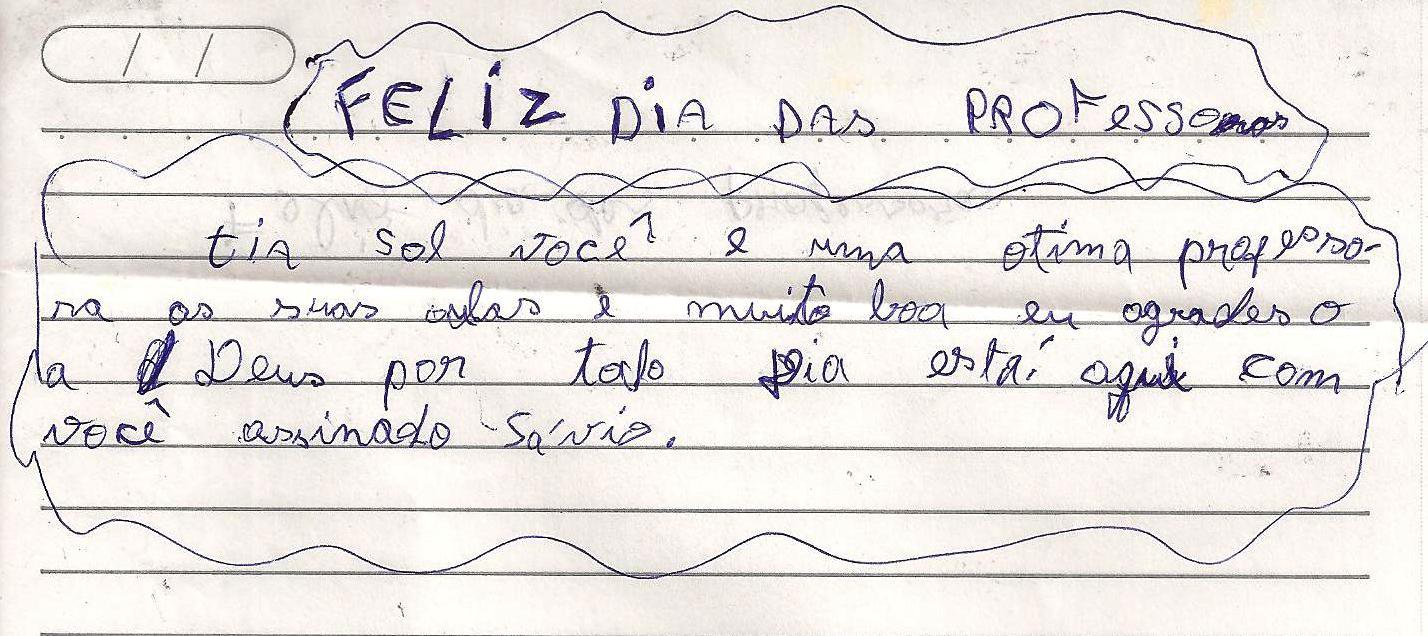 FELIZ DIA DAS PROFESSORAS
tia sol você e uma otima professo-
ra as suas aulas e muito boa eu agradeso
a Deus por todo dia está aqui com
você assinado Sávio.